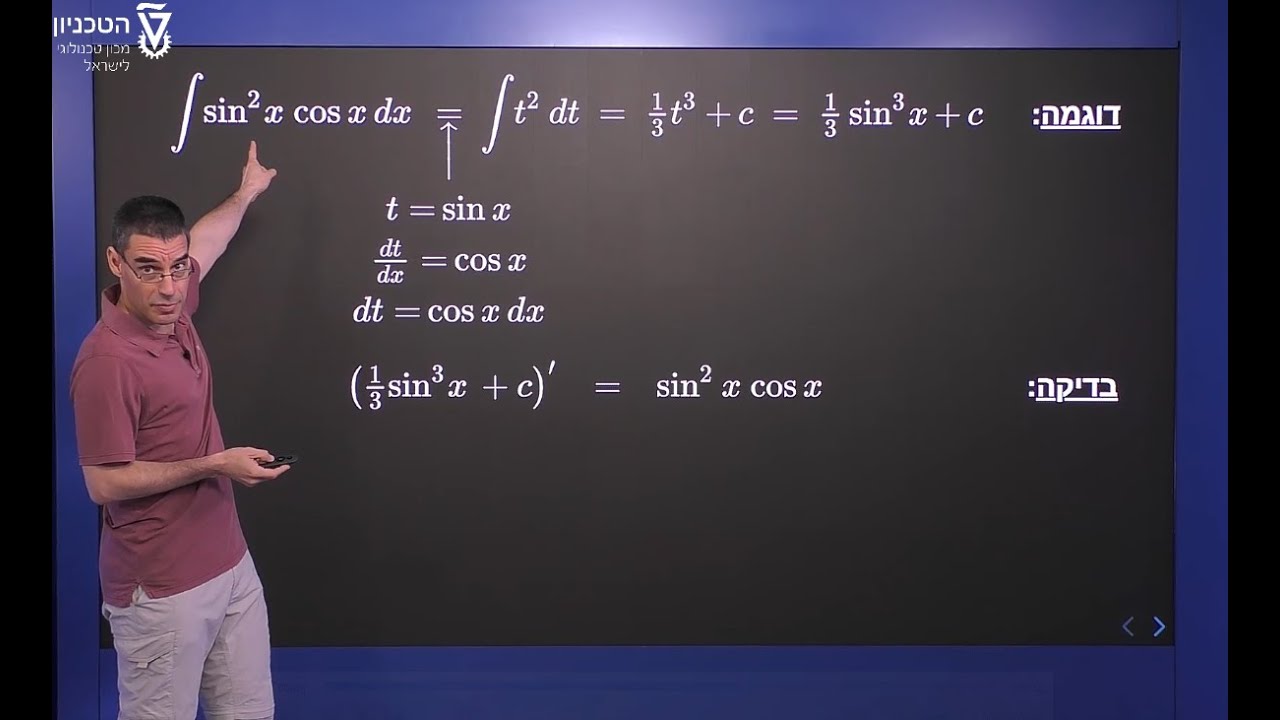 הטכניון
מכון טכנולוגי
לישראל
דוגמה: ∫ sin² x cos x dx = ∫ t² dt = 1/3 t³ + c = 1/3 sin³ x + c
t = sin x
dt/dx = cos x
dt = cos x dx
בדיקה: (1/3 sin³ x + c)′ = sin² x cos x